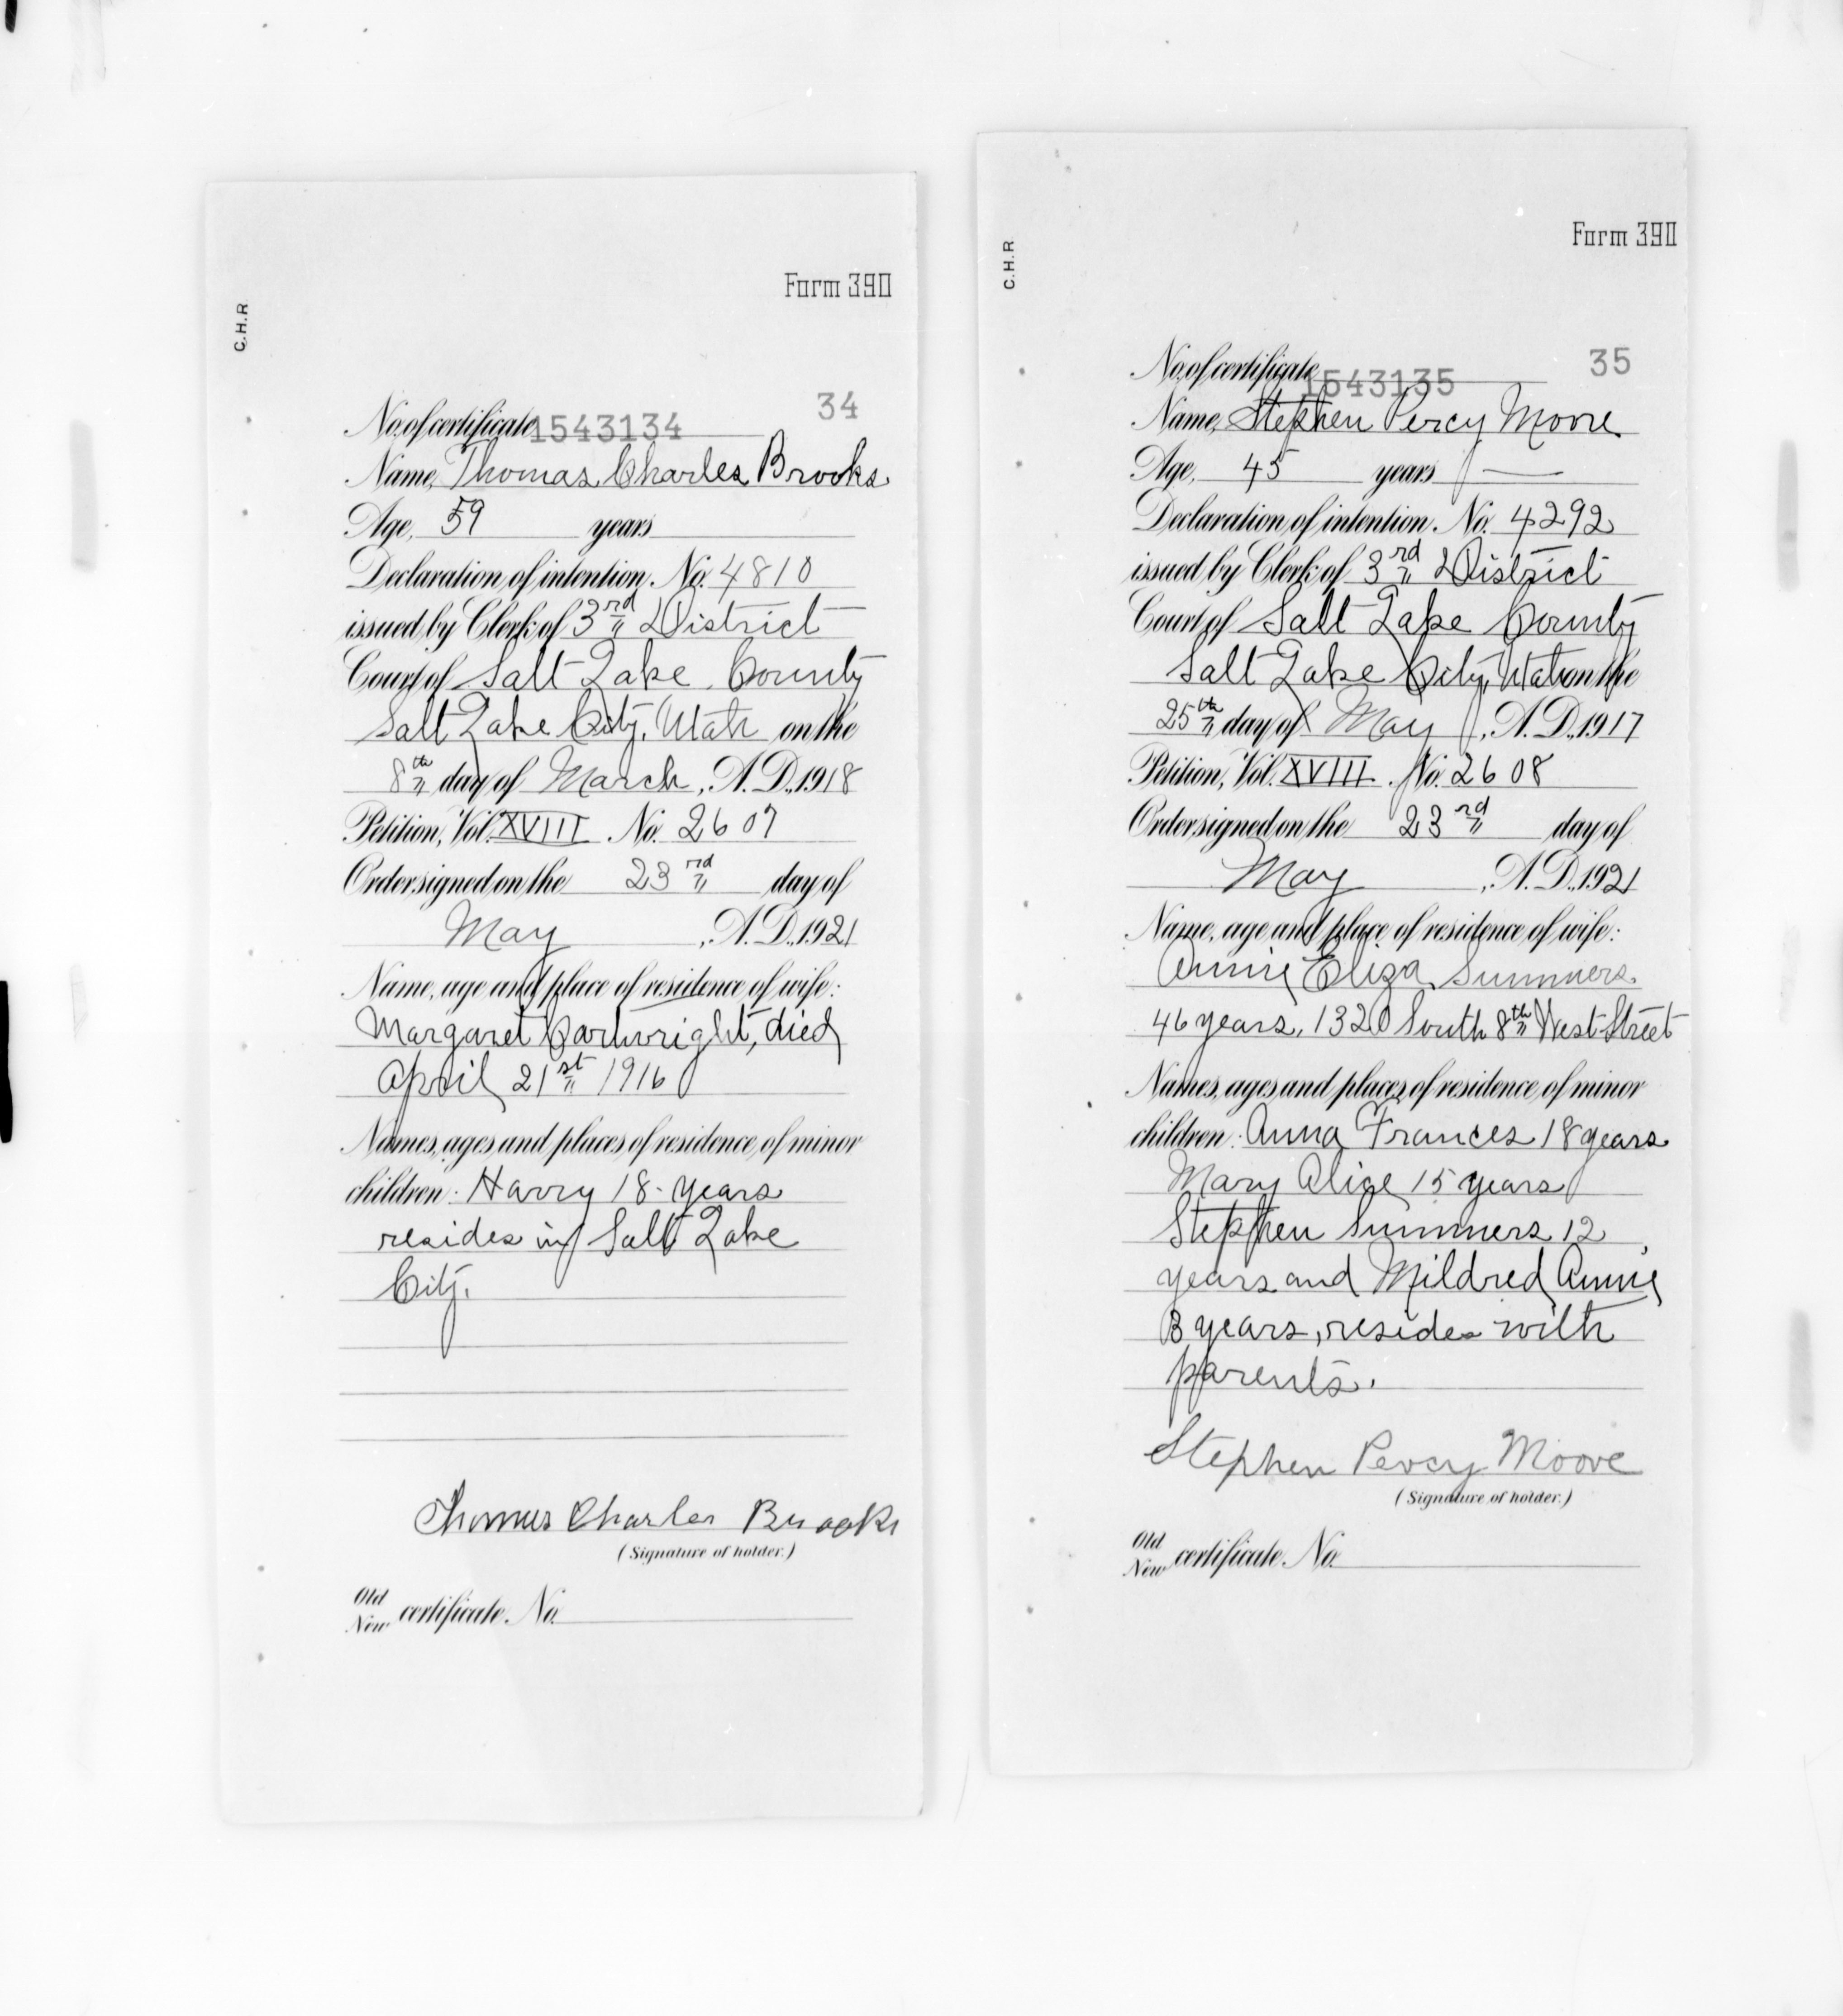 Form 390
C.H.R
34
No. of certificate 1543134
Name, Thomas Charles Brooks.
Age, 59 years
Declaration of intention, No. 4810
issued by Clerk of 3rd District
Court of Salt Lake County
Salt Lake City, Utah on the
8th day of March, A.D. 1918
Petition, Vol. XVIII No. 2607
Order signed on the 23rd day of
May, A.D. 1921
Name, age and place of residence of wife:
Margaret Cartwright, died
April 21st 1916
Names, ages and places of residence of minor
children: Harry 18 years
resides in Salt Lake
City.
Thomas Charles Brooks
(Signature of holder.)
Old
New certificate No.
Form 390
C.H.R
35
No. of certificate 1543135
Name, Stephen Percy Moore
Age, 45 years —
Declaration of intention, No. 4292
issued by Clerk of 3rd District
Court of Salt Lake County
Salt Lake City, Utah on the
25th day of May, A.D. 1917
Petition, Vol. XVIII No. 2608
Order signed on the 23rd day of
May, A.D. 1921
Name, age and place of residence of wife:
Annie Eliza Summers.
46 years, 1320 South 8th West Street
Names, ages and places of residence of minor
children: Anna Frances 18 years
Mary Alice 15 years
Stephen Summers 12
years and Mildred Annie
3 years, resides with
parents.
Stephen Percy Moore
(Signature of holder.)
Old
New certificate No.